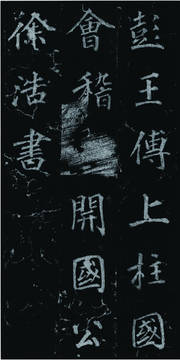 彭王傅上柱國
會稽開國公
徐浩書